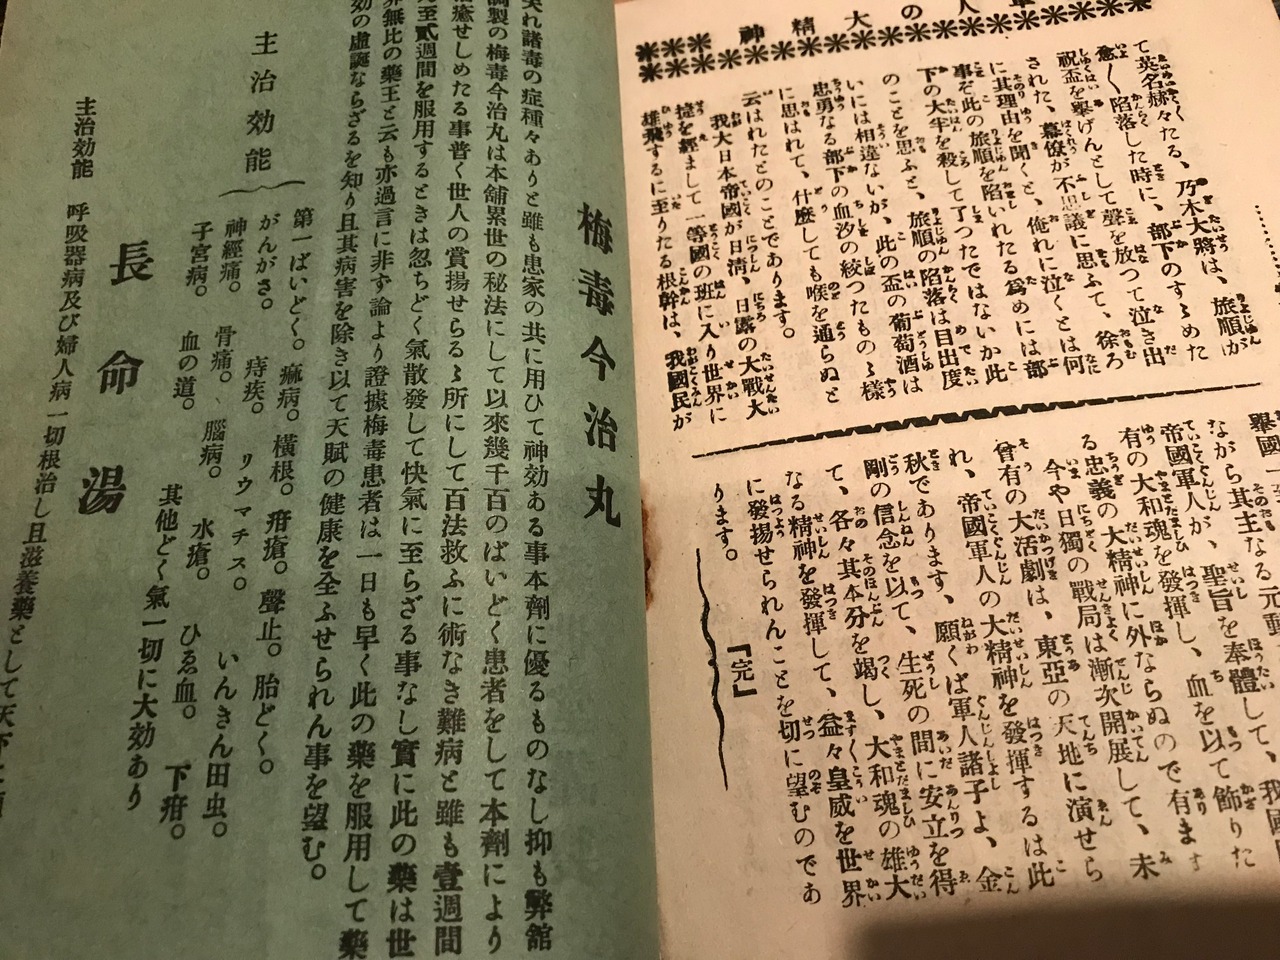 神精大の人軍
て英名赫々たる、乃木大將は、旅順が
愈〻陷落した時に、部下のすゝめた
祝盃を擧げんとして聲を放つて泣き出
された、幕僚が不思議に思ふて、徐ろ
に其理由を聞くと、俺れに泣くとは何
事ぞ此の旅順を陷いれたる爲めには部
下の大半を殺して了つたではないか此
のことを思ふと、旅順の陷落は目出度
いには相違ないが、此の盃の葡萄酒は
忠勇なる部下の血汐の絞つたものゝ樣
に思はれて、什麽しても喉を通らぬと
云はれたとのことであります。
我大日本帝國が日淸、日露の大戰大
捷を經まして一等國の班に入り世界に
雄飛するに至りたる根幹は、我國民が
ながら其主なる元動
帝國軍人が、聖旨を奉體して、我國
有の大和魂を發揮し、血を以て飾りた
る忠義の大精神に外ならぬので有ます
今や日獨の戰局は漸次開展して、未
曾有の大活劇は、東亞の天地に演せら
れ、帝國軍人の大精神を發揮するは此
秋であります、願くば軍人諸子よ、金
剛の信念を以て、生死の間に安立を得
て、各々其本分を竭し、大和魂の雄大
なる精神を發揮して、益々皇威を世界
に發揚せられんことを切に望むのであ
ります。
『完』
梅毒今治丸
夫れ諸毒の症種々ありと雖も患家の共に用ひて神効ある事本劑に優るものなし抑も弊館
調製の梅毒今治丸は本舖累世の秘法にして以來幾千百のばいどく患者をして本劑により
治癒せしめたる事普く世人の賞揚せらるゝ所にして百法救ふに術なき難病と雖も壹週間
乃至貳週間を服用するときは忽ちどく氣散發して快氣に至らざる事なし實に此の藥は世
界無比の藥王と云も亦過言に非ず論より證據梅毒患者は一日も早く此の藥を服用して藥
効の虛誕ならざるを知り且其病害を除き以て天賦の健康を全ふせられん事を望む。
主治効能
第一ばいどく。痳病。橫根。疳瘡。聲止。胎どく。
がんがさ。痔疾。リウマチス。いんきん田虫。
神經痛。骨痛。腦病。水瘡。ひゑ血。下疳。
子宮病。血の道。其他どく氣一切に大効あり
長命湯
主治効能 呼吸器病及び婦人病一切根治し且滋養藥として天下に